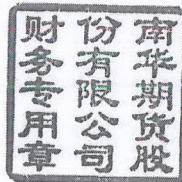 南华期货股
份有限公司
财务专用章